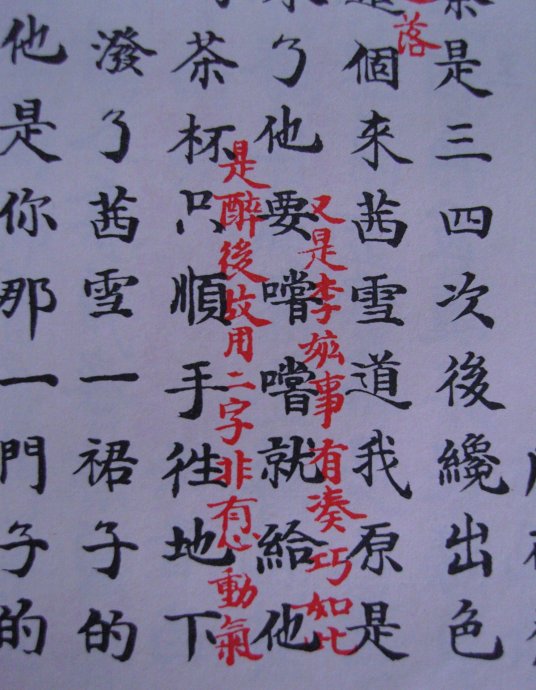 是三四次後纔出色
落
個來茜雪道我原是
又是李事有湊巧如此
了他要嚐嚐就給他
是醉後故用二字非有心動氣
茶杯只順手往地下
潑了茜雪一裙子的
他是你那一門子的